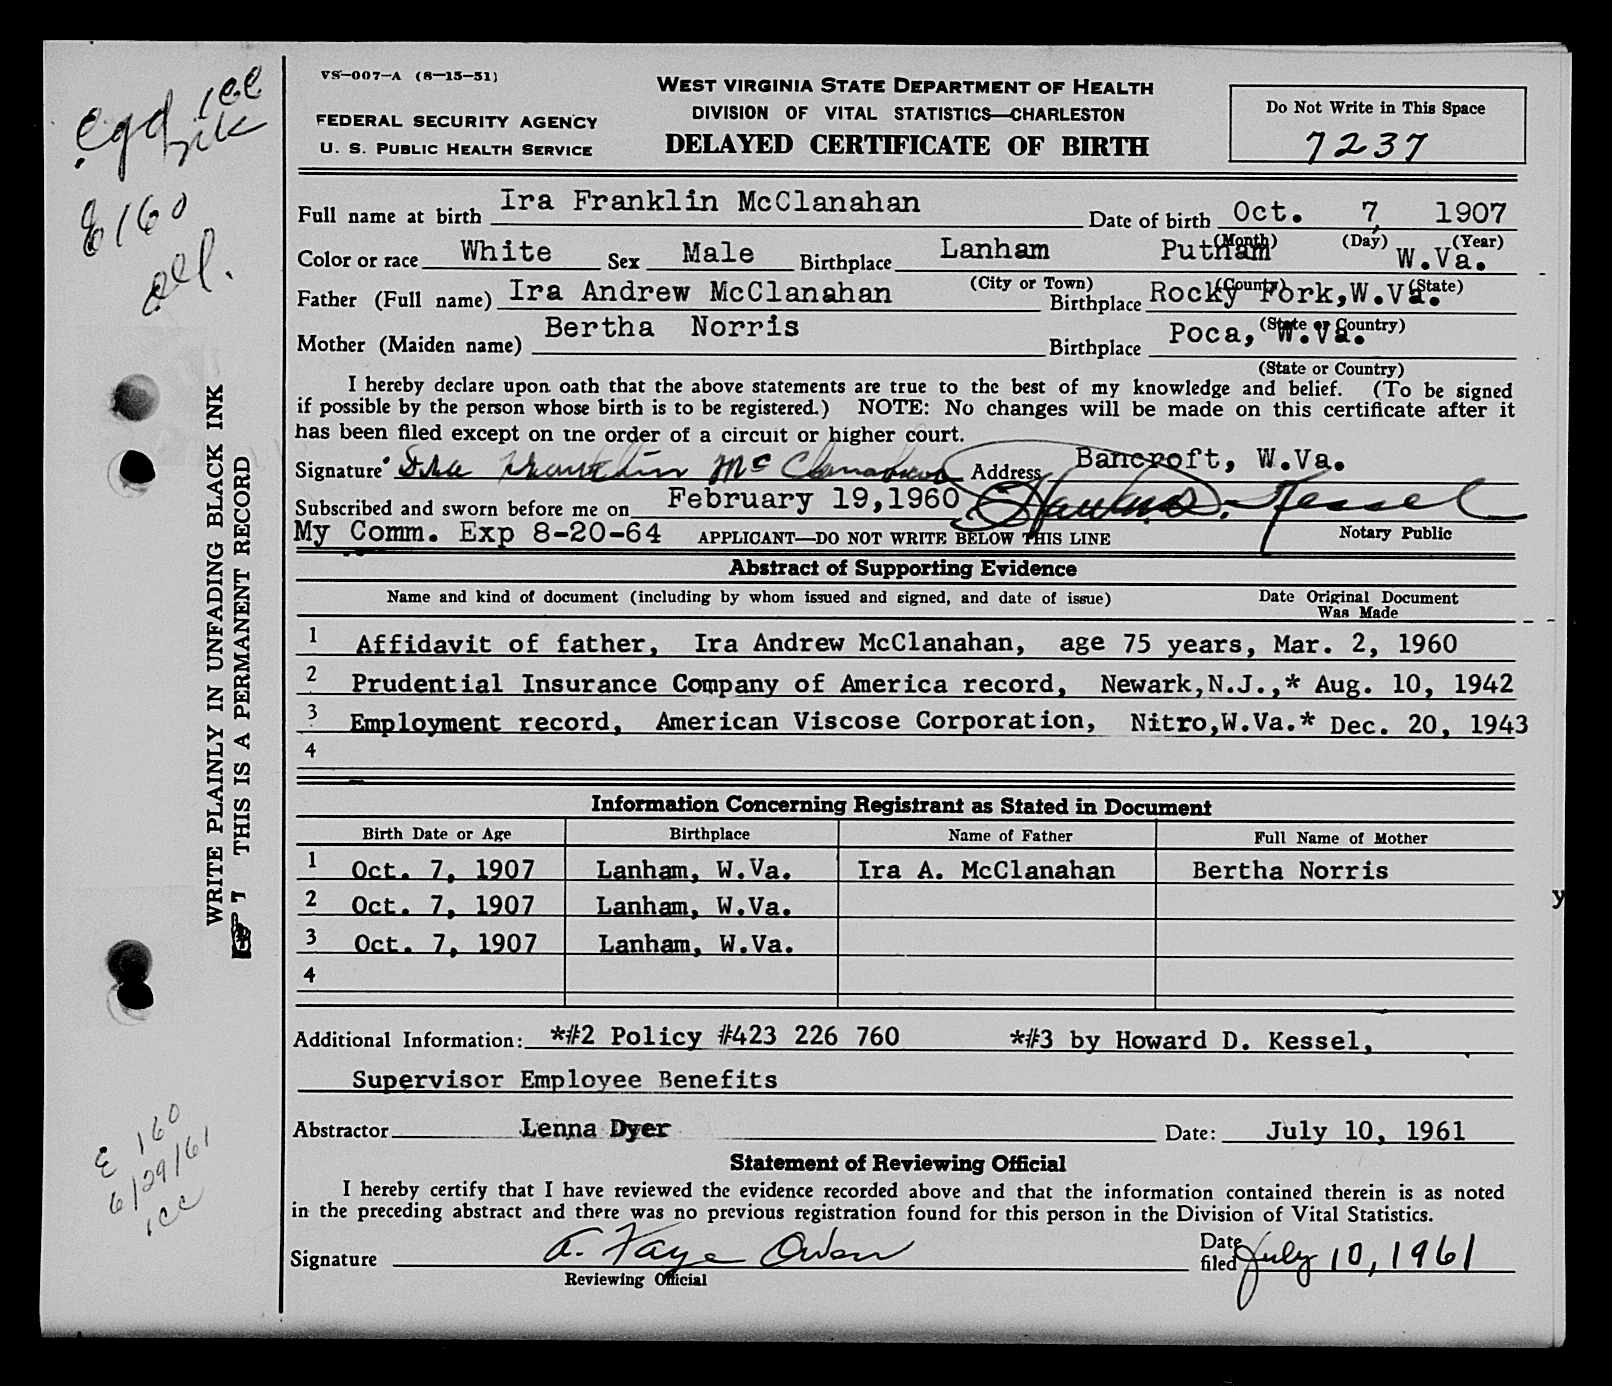 VS-007-A (8-15-51)
FEDERAL SECURITY AGENCY
U. S. PUBLIC HEALTH SERVICE
WEST VIRGINIA STATE DEPARTMENT OF HEALTH
DIVISION OF VITAL STATISTICS—CHARLESTON
DELAYED CERTIFICATE OF BIRTH
Do Not Write in This Space
7237
1cc
E160
Full name at birth Ira Franklin McClanahan Date of birth Oct. 7, 1907
(Month) (Day) (Year)
Color or race White Sex Male Birthplace Lanham Putnam W.Va.
(City or Town) (County) (State)
Father (Full name) Ira Andrew McClanahan Birthplace Rocky Fork,W.Va.
(State or Country)
Mother (Maiden name) Bertha Norris Birthplace Poca, W.Va.
(State or Country)
I hereby declare upon oath that the above statements are true to the best of my knowledge and belief. (To be signed
if possible by the person whose birth is to be registered.) NOTE: No changes will be made on this certificate after it
has been filed except on the order of a circuit or higher court.
Signature Ira Franklin McClanahan Address Bancroft, W.Va.
Subscribed and sworn before me on February 19,1960 Howard D. Kessel
My Comm. Exp 8-20-64 APPLICANT—DO NOT WRITE BELOW THIS LINE Notary Public
Abstract of Supporting Evidence
Name and kind of document (including by whom issued and signed, and date of issue) Date Original Document
Was Made
1 Affidavit of father, Ira Andrew McClanahan, age 75 years, Mar. 2, 1960
2 Prudential Insurance Company of America record, Newark,N.J.,* Aug. 10, 1942
3 Employment record, American Viscose Corporation, Nitro,W.Va.* Dec. 20, 1943
4
Information Concerning Registrant as Stated in Document
Birth Date or Age Birthplace Name of Father Full Name of Mother
1 Oct. 7, 1907 Lanham, W.Va. Ira A. McClanahan Bertha Norris
2 Oct. 7, 1907 Lanham, W.Va.
3 Oct. 7, 1907 Lanham, W.Va.
4
Additional Information: *#2 Policy #423 226 760 *#3 by Howard D. Kessel,
Supervisor Employee Benefits
Abstractor Lenna Dyer Date: July 10, 1961
Statement of Reviewing Official
I hereby certify that I have reviewed the evidence recorded above and that the information contained therein is as noted
in the preceding abstract and there was no previous registration found for this person in the Division of Vital Statistics.
Signature A. Faye Owen Date filed July 10, 1961
Reviewing Official
WRITE PLAINLY IN UNFADING BLACK INK
THIS IS A PERMANENT RECORD
E 160
6/29/61
1cc
y